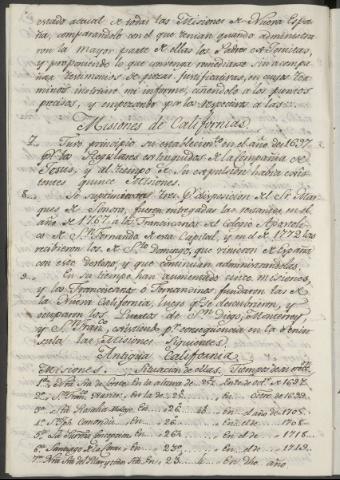 estado actual de todas las Misiones de Nueva España, comparandolo con el que tenian quando administraron la mayor parte de ellas los Padres Jesuitas,
y proponiendo lo que convenga remediarse sin acompañar testimonios de piezas justificativas, en cuyos terminos instruiré mi informe, ciñendolo a los puntos
precisos, y empezando por los respectivos a las
Misiones de Californias.
7.. Tuvo principio su establecimto. en el año de 1697.
pr. los Regulares extinguidos de la Compañia de
Jesus, y al tiempo de su expulsion habia existentes quince Misiones.
8.. Se suprimieron tres pr. disposicion del Sr. Marques de Sonora, fueron entregadas las restantes en el
año de 1767 a los Franciscanos del Colegio Apostolico de Sn. Fernando de esta Capital, y en el de 1772 las
recibieron los de Sto. Domingo, que vinieron de España
con este destino, y que continuan administrandolas.
9.. En su tiempo han aumentado cinco misiones,
y los Franciscanos o Fernandinos fundaron las de
la Nueva California, luego qe. se descubrieron, y
ocuparon los Puertos de Sn. Diego, Monterrey,
y Sn. Franco., existiendo pr. consequencia en la Peninsula las Misiones siguientes.
Antigua California
Misiones. Situacion de ellas. Tiempo de su ereccn.
1a. Ntra. Sra. de Loreto. En la altura de 25½ Este de octe. de 1697.
2a. Sn. Franco. Xavier. en la de 25 en Enero de 1699.
3a. Sta. Rosalia Mulege. En 26 en el año de 1705.
4a. Sn. José Comondú. En 26 en el de 1708.
5a. La Purisma. Concepcion. En 26 en el de 1718.
6a. Santiago de las Coras. En 23 en el de 1719.
7a. Ntra. Sra. del Pilar y Todos Stos. En 23 en dho. año